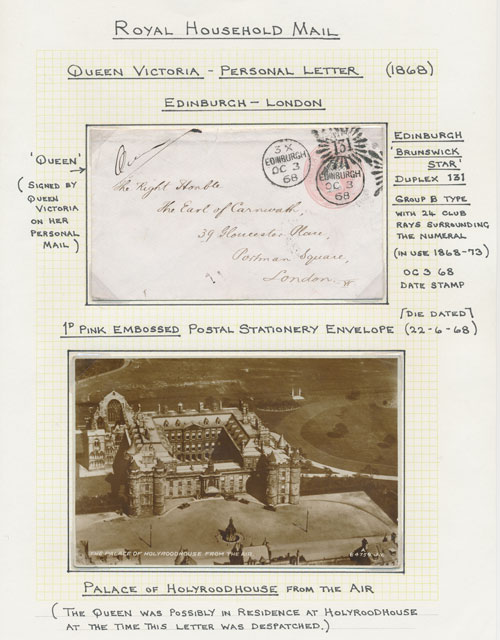 ROYAL HOUSEHOLD MAIL
QUEEN VICTORIA - PERSONAL LETTER (1868)
EDINBURGH - LONDON
'QUEEN'
(SIGNED BY
QUEEN
VICTORIA
ON HER
PERSONAL
MAIL)
3X
EDINBURGH
OC 3
68
131
EDINBURGH
OC 3
68
The Right Honble.
The Earl of Carnwath,
39 Gloucester Place,
Portman Square,
London. W
EDINBURGH
'BRUNSWICK
STAR'
DUPLEX 131
GROUP B TYPE
WITH 24 CLUB
RAYS SURROUNDING
THE NUMERAL
(IN USE 1868-73)
OC 3 68
DATE STAMP
[DIE DATED]
1D PINK EMBOSSED POSTAL STATIONERY ENVELOPE (22-6-68)
THE PALACE OF HOLYROODHOUSE FROM THE AIR
PALACE OF HOLYROODHOUSE FROM THE AIR
(THE QUEEN WAS POSSIBLY IN RESIDENCE AT HOLYROODHOUSE
AT THE TIME THIS LETTER WAS DESPATCHED.)